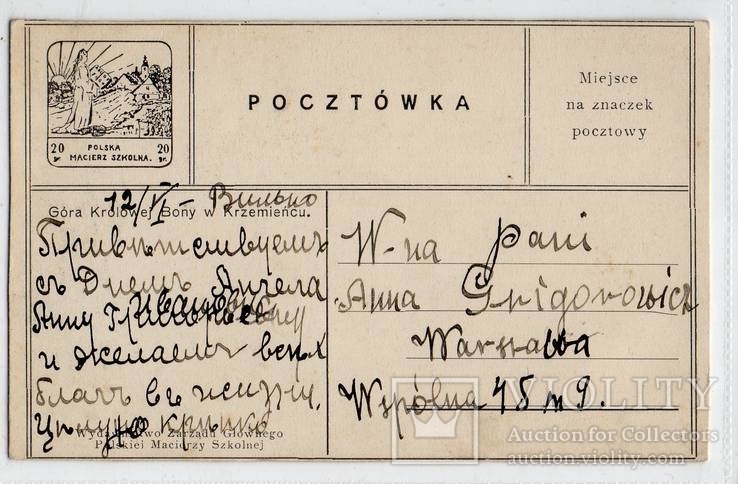 20 gr. POLSKA MACIERZ SZKOLNA. 20 gr.
POCZTÓWKA
Miejsce
na znaczek
pocztowy
12/VI – Вильно
Góra Królowej Bony w Krzemieńcu.
Привѣтствуемъ
съ Днемъ Ангела
Ивановну
Анну
и желаемъ всѣхъ
благъ въ жизни.
Цѣлую крѣпко
Wydawnictwo Zarządu Głównego
Polskiej Macierzy Szkolnej
W-na Pani
Anna Grigorowicz
Warszawa
Wspólna 45 m 9.
VIOLITY
Auction for Collectors
auction.violity.com